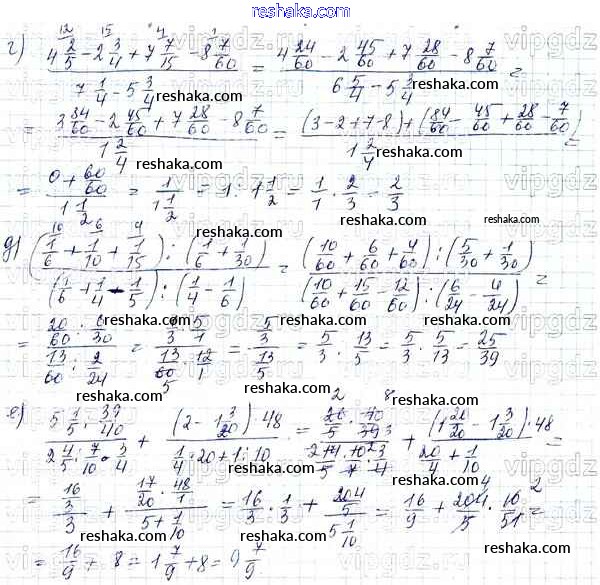 reshaka.com
г) (4 2/5 - 2 3/4 + 7 7/15 - 8 7/60) / (7 1/4 - 5 3/4) = (4 24/60 - 2 45/60 + 7 28/60 - 8 7/60) / (6 5/4 - 5 3/4) =
= (3 84/60 - 2 45/60 + 7 28/60 - 8 7/60) / (1 2/4) = ((3-2+7-8) + (84/60 - 45/60 + 28/60 - 7/60)) / (1 2/4) =
= (0 + 60/60) / (1 1/2) = 1 / (1 1/2) = 1 : 1 1/2 = 1/1 · 2/3 = 2/3
д) ((1/6 + 1/10 + 1/15) : (1/6 + 1/30)) / ((1/6 + 1/4 - 1/5) : (1/4 - 1/6)) = ((10/60 + 6/60 + 4/60) : (5/30 + 1/30)) / ((10/60 + 15/60 - 12/60) : (6/24 - 4/24)) =
= (20/60 : 6/30) / (13/60 : 2/24) = (1/3 · 5/1) / (13/60 · 12/1) = (5/3) / (13/5) = 5/3 : 13/5 = 5/3 · 5/13 = 25/39
е) (5 1/5 : 39/40) / (2 4/5 : 7/10 · 3/4) + ((2 - 1 3/20) · 48) / (1/4 · 20 + 1 : 10) = (26/5 · 40/39) / (14 · 10 · 3 / 5 · 7 · 4) + ((1 20/20 - 1 3/20) · 48) / (20/4 + 1/10) =
= (16/3) / 3 + (17/20 · 48/1) / (5 + 1/10) = 16/3 · 1/3 + (204/5) / (5 1/10) = 16/9 + 204/5 · 10/51 =
= 16/9 + 8 = 1 7/9 + 8 = 9 7/9